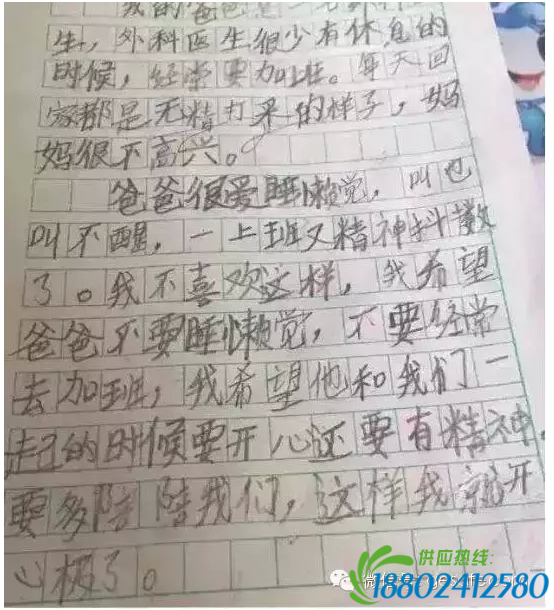 我的爸爸是一
生，外科医生很少有休息的
时候，经常要加班。每天回
家都是无精打采的样子，妈
妈很不高兴。
爸爸很爱睡懒觉，叫也
叫不醒，一上班又精神抖擞
了。我不喜欢这样，我希望
爸爸不要睡懒觉，不要经常
去加班，我希望他和我们一
起的时候要开心还要有精神，
要多陪陪我们，这样我就开
心极了。
供应热线:
18802412580